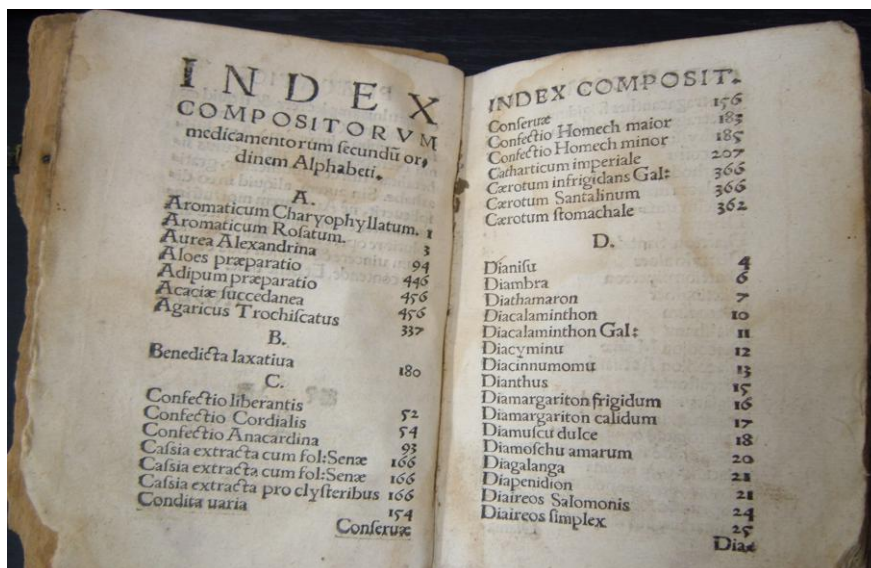 INDEX
COMPOSITORVM
medicamentorum ſecundū or,
dinem Alphabeti.
A.
Aromaticum Charyophyllatum. 1
Aromaticum Roſatum. 3
Aurea Alexandrina 94
Aloes præparatio 446
Adipum præparatio 456
Acaciæ ſuccedanea 456
Agaricus Trochiſcatus 337
B.
Benedicta laxatiua 180
C.
Confectio liberantis 52
Confectio Cordialis 54
Confectio Anacardina 93
Caſsia extracta cum fol:Senæ 166
Caſsia extracta cum fol:Senæ 166
Caſsia extracta pro clyſteribus 166
Condita uaria 154
Conſeruæ
INDEX COMPOSIT.
Conſeruæ 156
Confectio Homech maior 183
Confectio Homech minor 185
Catharticum imperiale 207
Cærotum infrigidans Gal: 366
Cærotum Santalinum 366
Cærotum ſtomachale 362
D.
Dianiſu 4
Diambra 6
Diathamaron 7
Diacalaminthon 10
Diacalaminthon Gal: 11
Diacyminu 12
Diacinnumomu 13
Dianthus 15
Diamargariton frigidum 16
Diamargariton calidum 17
Diamuſcu dulce 18
Diamoſchu amarum 20
Diagalanga 21
Diapenidion 21
Diaireos Salomonis 24
Diaireos ſimplex 25
Diæ